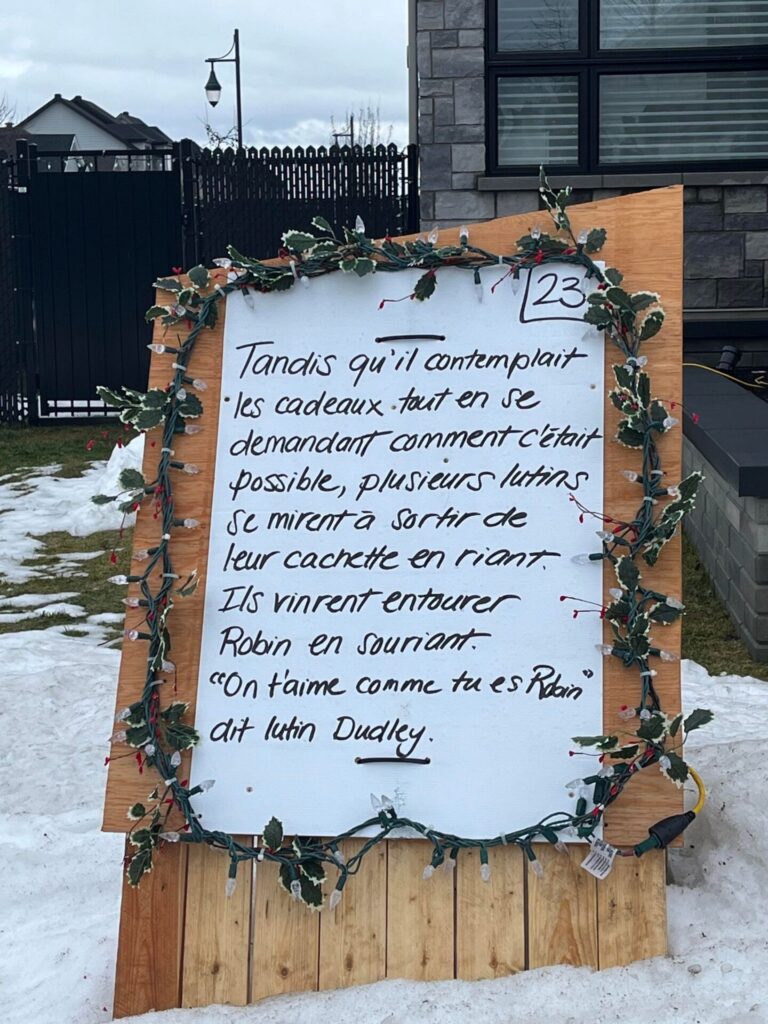 23
Tandis qu'il contemplait
les cadeaux tout en se
demandant comment c'était
possible, plusieurs lutins
se mirent à sortir de
leur cachette en riant.
Ils vinrent entourer
Robin en souriant.
"On t'aime comme tu es Robin"
dit lutin Dudley.